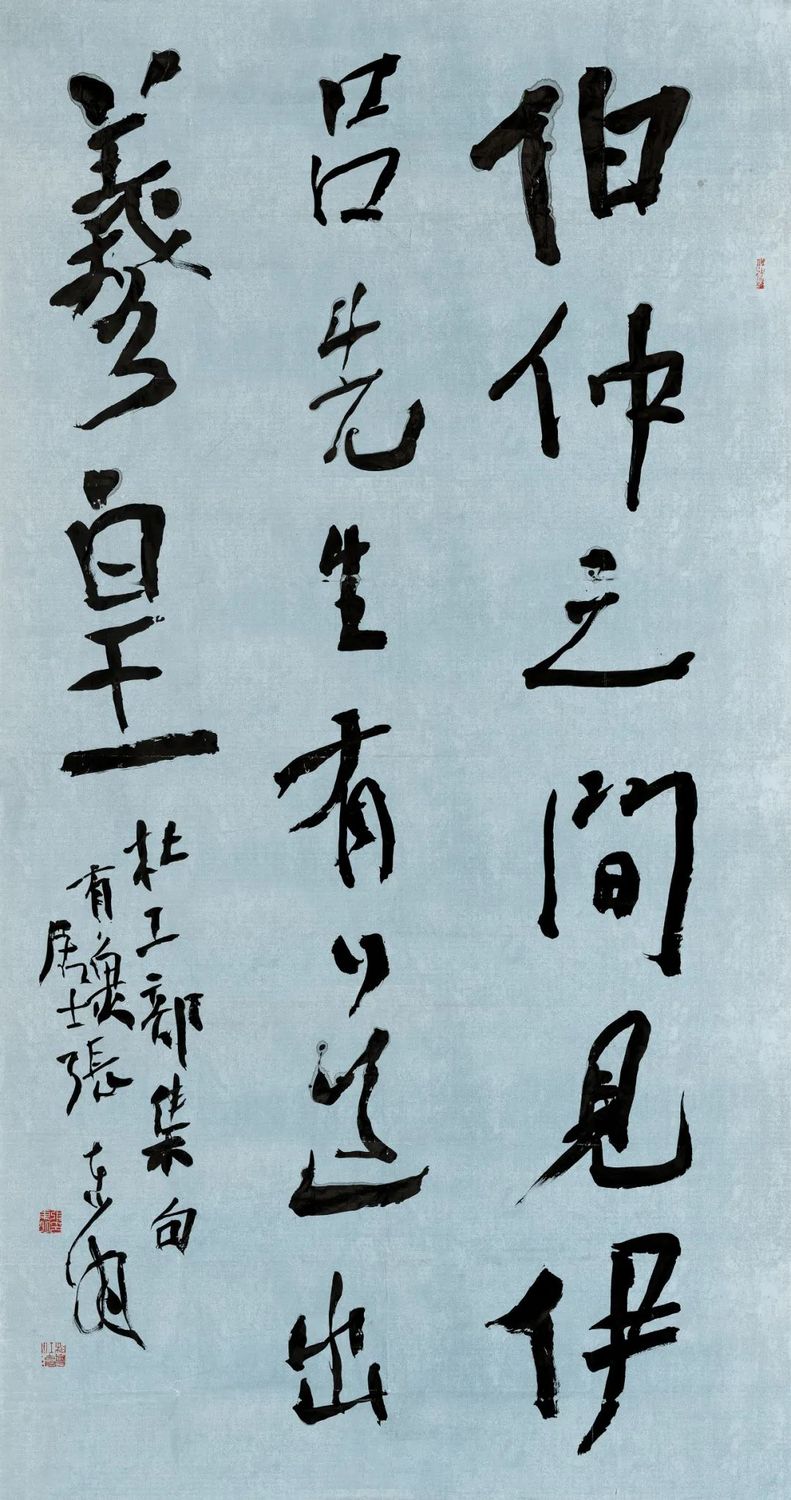 伯仲之間見伊
呂先生有道出
羲皇
杜工部集句
有
居士張